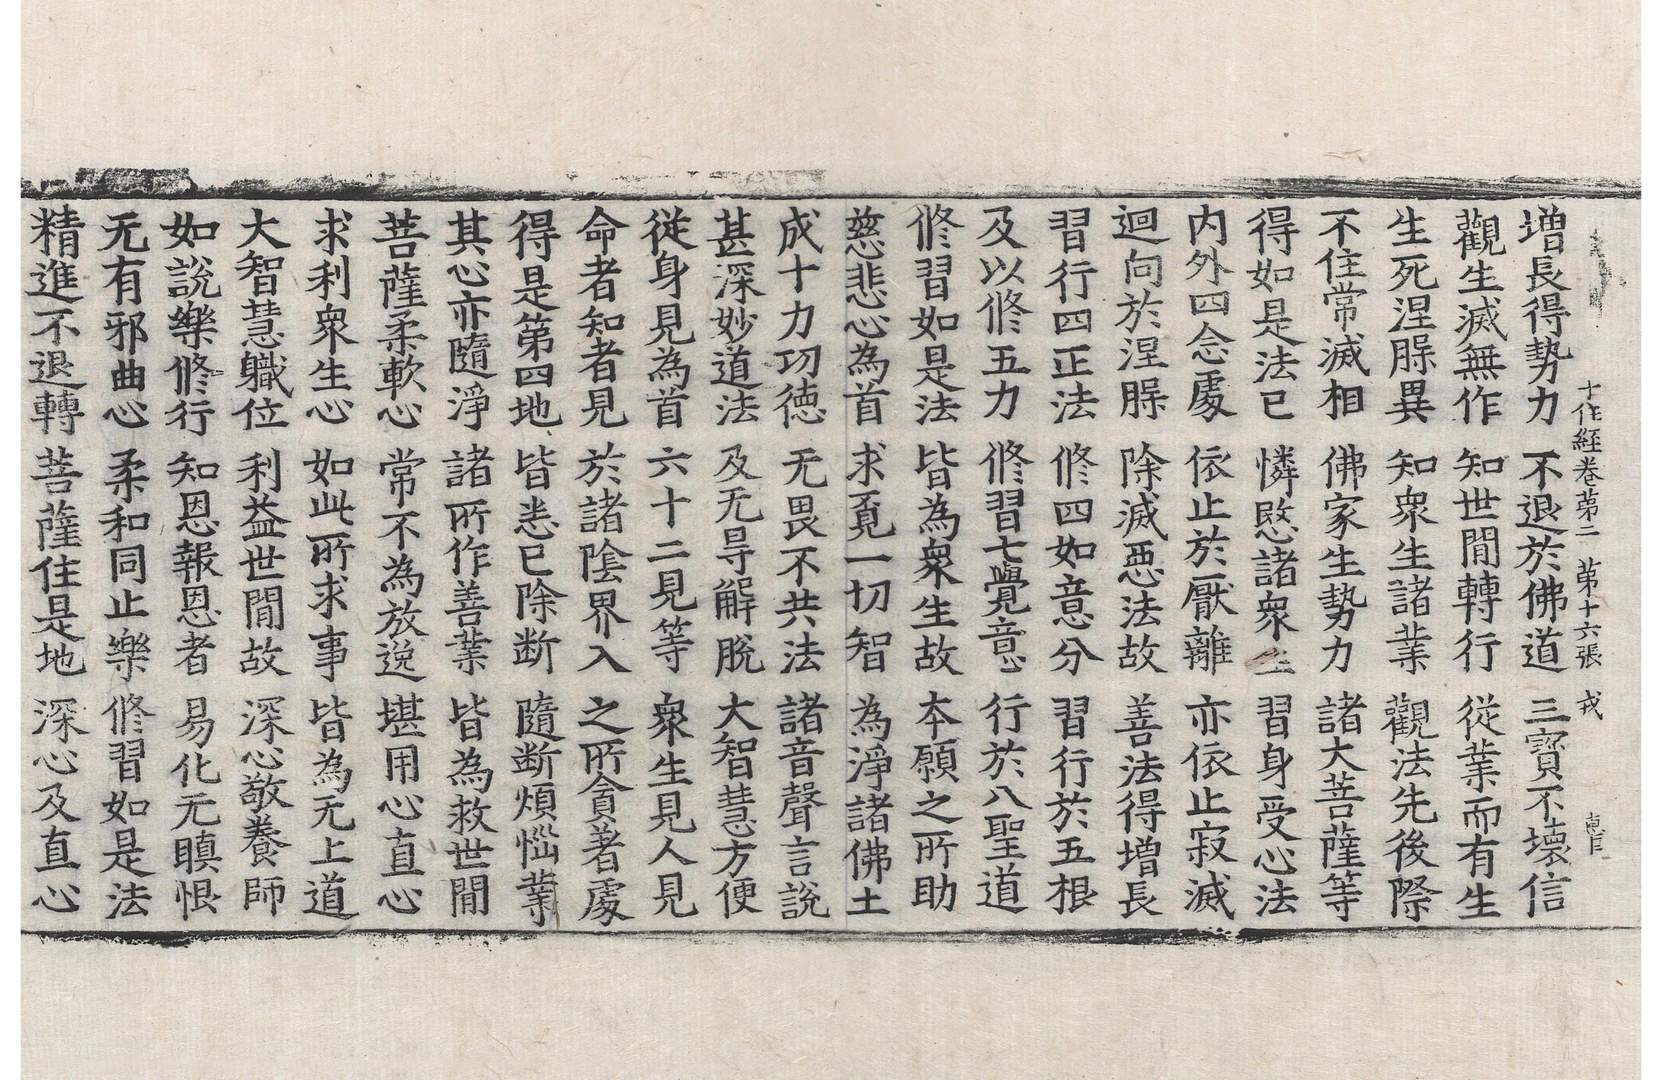 十住經卷第二　第十六張　戎
增長得勢力　不退於佛道　三寶不壞信
觀生滅無作　知世間轉行　從業而有生
生死涅槃異　知衆生諸業　觀法先後際
不住常滅相　佛家生勢力　諸大菩薩等
得如是法已　憐愍諸衆生　習身受心法
内外四念處　依止於厭離　亦依止寂滅
迴向於涅槃　除滅惡法故　善法得增長
習行四正法　修四如意分　習行於五根
及以修五力　修習七覺意　行於八聖道
修習如是法　皆為衆生故　本願之所助
慈悲心為首　求覔一切智　為淨諸佛土
成十力功德　无畏不共法　諸音聲言說
甚深妙道法　及无㝵解脫　大智慧方便
從身見為首　六十二見等　衆生見人見
命者知者見　於諸陰界入　之所貪著處
得是第四地　皆悉已除断　隨断煩惱業
其心亦隨淨　諸所作善業　皆為救世間
菩薩柔軟心　常不為放逸　堪用心直心
求利衆生心　如此所求事　皆為无上道
大智慧職位　利益世間故　深心敬養師
如說樂修行　知恩報恩者　易化无瞋恨
无有邪曲心　柔和同止樂　修習如是法
精進不退轉　菩薩住是地　深心及直心